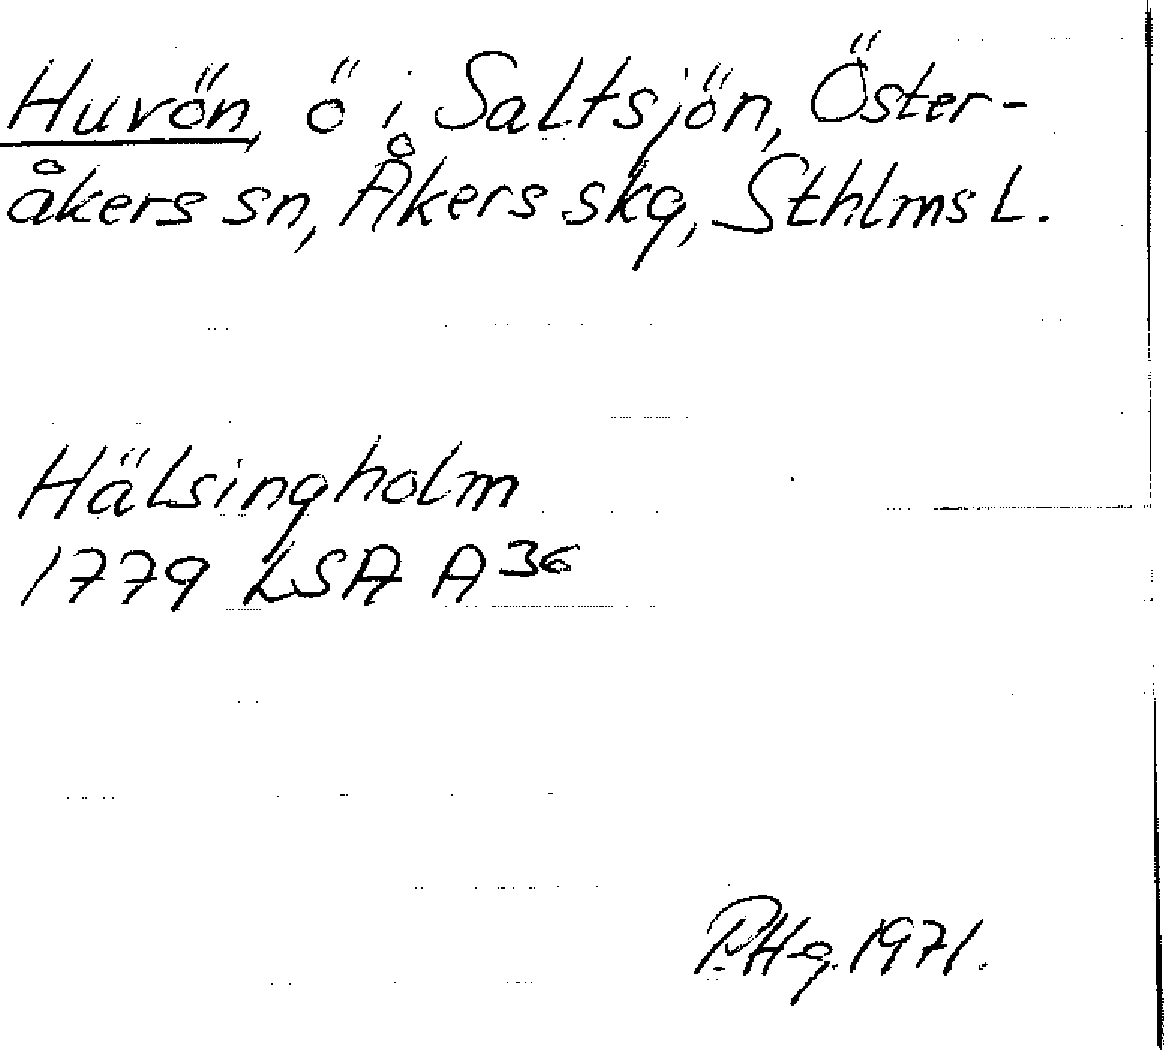 Huvön, ö i Saltsjön, Öster-
åkers sn, Åkers skg, Sthlms L.
Hälsingholm
1779 LSA A 36
P.Hg. 1971.